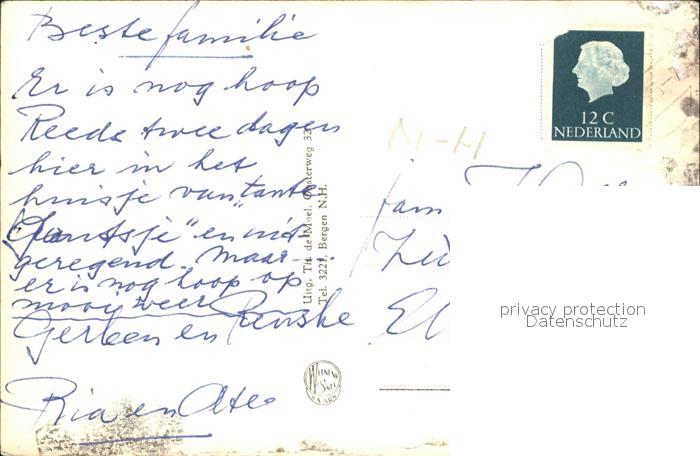 Beste familie
Er is nog hoop
Reeds twee dagen
hier in het
huisje van "tante
Jantsje" en niet
geregend. Maar
er is nog hoop op
mooi weer
Gerben en Renske
Ria en
Uitg. Th. de Moel. Oosterweg 32
Tel. 3227. Bergen N.H.
12 C
NEDERLAND
N-H
fam
privacy protection
Datenschutz